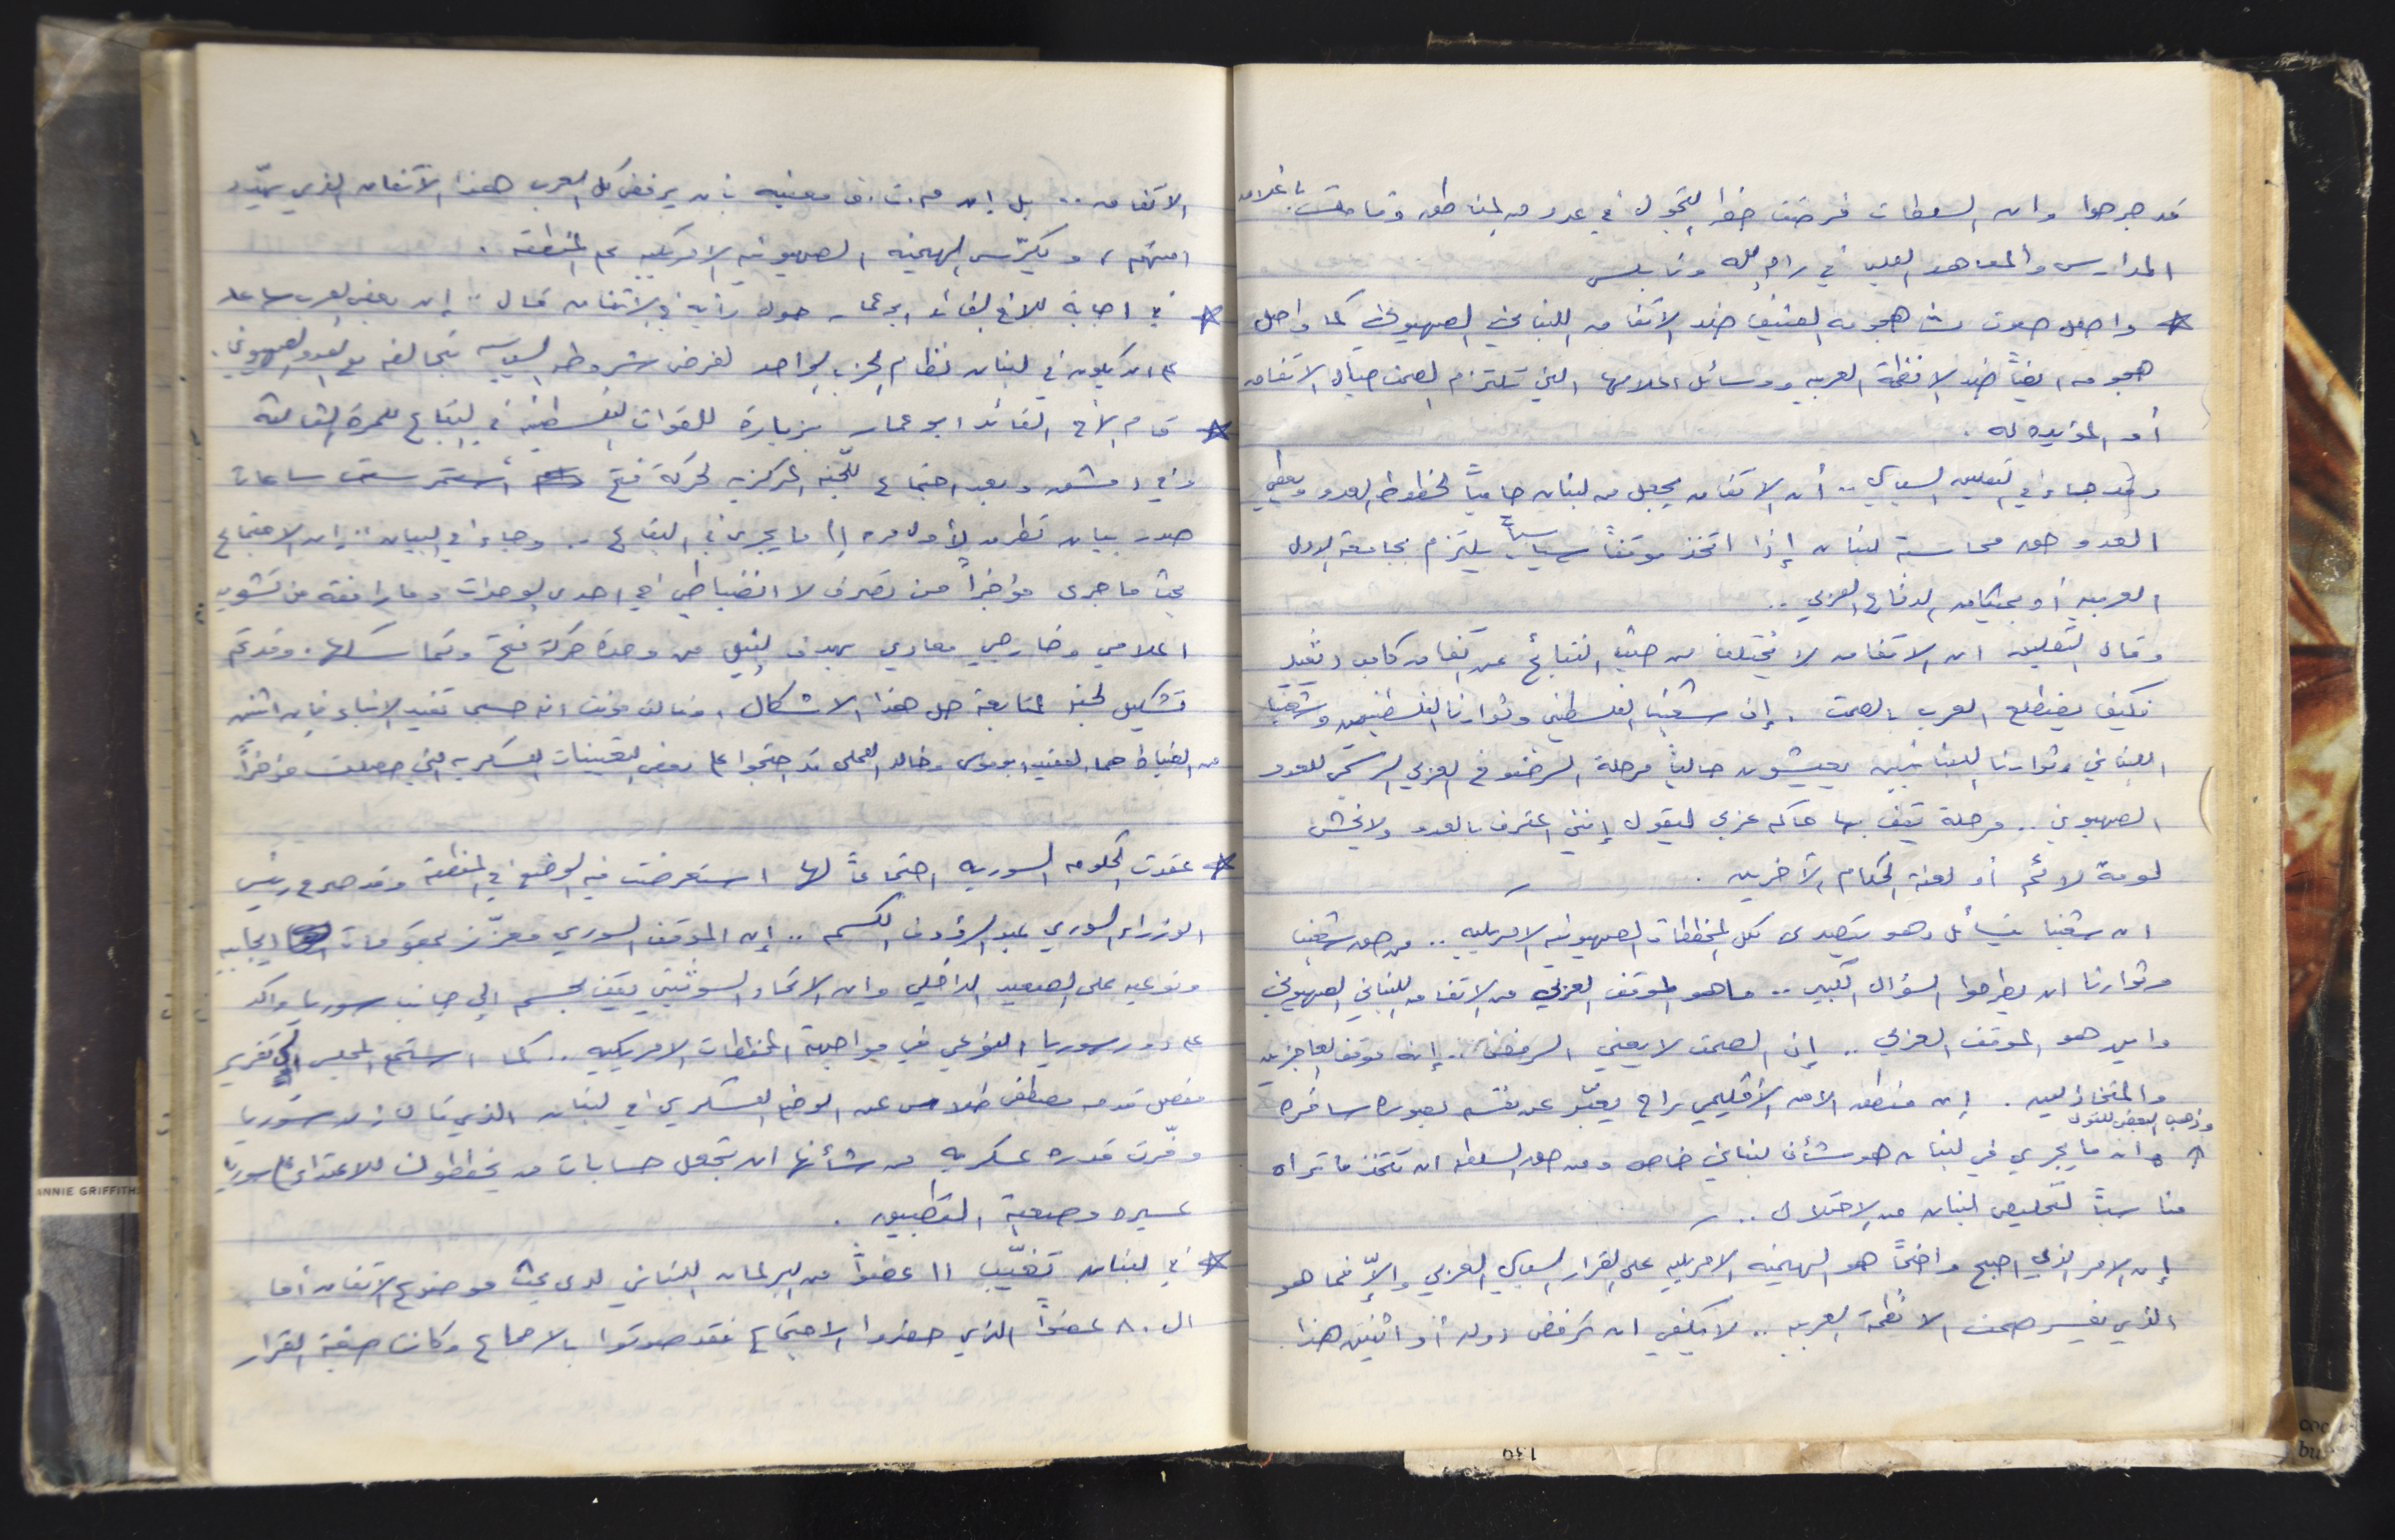 قد جرحوا وان السلطات فرضت حظر التجول في عدد من المناطق وقامت باغلاق
المدارس والمعاهد العليا في رام الله ونابلس
* واصل صوت هجومه العنيف ضد الاتفاق اللبناني الصهيوني كما واصل
هجومه ايضاً ضد الانظمة العربيه ووسائل اعلامها التي تلتزم الصمت حيال الاتفاق
أو المؤيده له .
وقد جاء في التعليق السياسي .. أن الاتفاق يجعل من لبنان حامياً لخطوط العدو ويعطي
العدو حق محاسبة لبنان إذا اتخذ موقفاً سياسياً يلتزم بجامعة الدول
العربيه أو بميثاق الدفاع العربي ..
وقال التعليق ان الاتفاق لا يختلف من حيث النتائج عن اتفاق كامب ديفيد
فكيف يضطلع العرب بالصمت . إن شعبنا الفلسطيني وثوارنا الفلسطينيين وشعبنا
اللبناني وثوارنا اللبنانيين يعيشون حالياً مرحلة الرضوخ العربي الرسمي للعدو
الصهيوني .. مرحلة يقف بها حاكم عربي ليقول إنني اعترف بالعدو ولا يخشى
لومة لائم أو لعنة الحكام الآخرين .
ان شعبنا يتسائل وهو يتصدى لكل المخططات الصهيونيه الامريكيه .. من حق شعبنا
وثوارنا ان يطرحوا السؤال الكبير .. ما هو الموقف العربي من الاتفاق اللبناني الصهيوني
واين هو الموقف العربي .. إن الصمت لا يعني الرفض .. إنه موقف العاجزين
والمتخاذلين . إن منطق الامن الاقليمي راح يعبّر عن نفسه بصوره سافره
وذهب البعض للقول
ان ما يجري في لبنان هو شأن لبناني خاص ومن حق السلطه ان تتخذ ما تراه
مناسباً لتخليص لبنان من الاحتلال ..
إن الامر الذي اصبح واضحاً هو الهيمنه الامريكيه على القرار السياسي العربي والاّ فما هو
الذي يفسر صمت الانظمة العربيه .. لا يكفي ان ترفض دوله أو اثنتين هذا
الاتفاق .. بل إن م.ت.ف معنيه بأن يرفض كل العرب هذا الاتفاق الذي يهدّد
امنهم ، ويكرّس الهيمنه الصهيونيه الامريكيه على المنطقه .
* في اجابة للاخ القائد ابو عمار حول رأيه في الاتفاق قال .. إن بعض العرب ساعد
على ان يكون في لبنان نظام الحزب الواحد لفرض شروطه السياسيه بتحالفه مع العدو الصهيوني .
* قام الأخ القائد ابو عمار بزيارة للقوات الفلسطينيه في البقاع للمرة الثالثة
وفي دمشق وبعد اجتماع للّجنه المركزيه لحركة فتح استمر ست ساعات
صدر بيان تطرق لأول مره إلى ما يجري في البقاع .. وجاء في البيان .. ان الاجتماع
بحث ما جرى مؤخراً من تصرف لا انضباطي في احدى الوحدات وما رافقه من تشويه
اعلامي وخارجي معادي بهدف النيل من وحدة حركة فتح وتماسكها . وقد تم
تشكيل لجنه لمتابعة حل هذا الاشكال ، حسبما تفيد الانباء فإن اثنين
من الضباط هما العقيد ابو موسى وخالد العملى قد احتجوا على بعض التعيينات العسكريه التي حصلت مؤخراً
* عقدت الحكومه السوريه اجتماعاً لها استعرضت فيه الوضع في المنطقة وقد صرح رئيس
الوزراء السوري عبد الرؤوف الكسم .. إن الموقف السوري معزّز بمقومات ايجابيه
ونوعيه على الصعيد الداخلي وان الاتحاد السوفييتي يقف بحسم إلى جانب سوريا واكد
على دور سوريا النوعي في مواجهة المخططات الامريكيه .. كما استمع المجلس إلى تقرير
مفصل قدمه مصطفى طلاس عن الوضع العسكري في لبنان الذي قال ان سوريا
وفّرت قدره عسكريه من شأنها ان تجعل حسابات من يخططون للاعتداء على سوريا
عسيره وصعبة التطبيق .
* في لبنان تغيّب ١١ عضواً من البرلمان اللبناني لدى بحث موضوع الاتفاق أما
ال ٨٠ عضواً الذي حضروا الاجتماع فقد صوتوا بالاجماع وكانت صيغة القرار
ANNIE GRIFFITHS
139